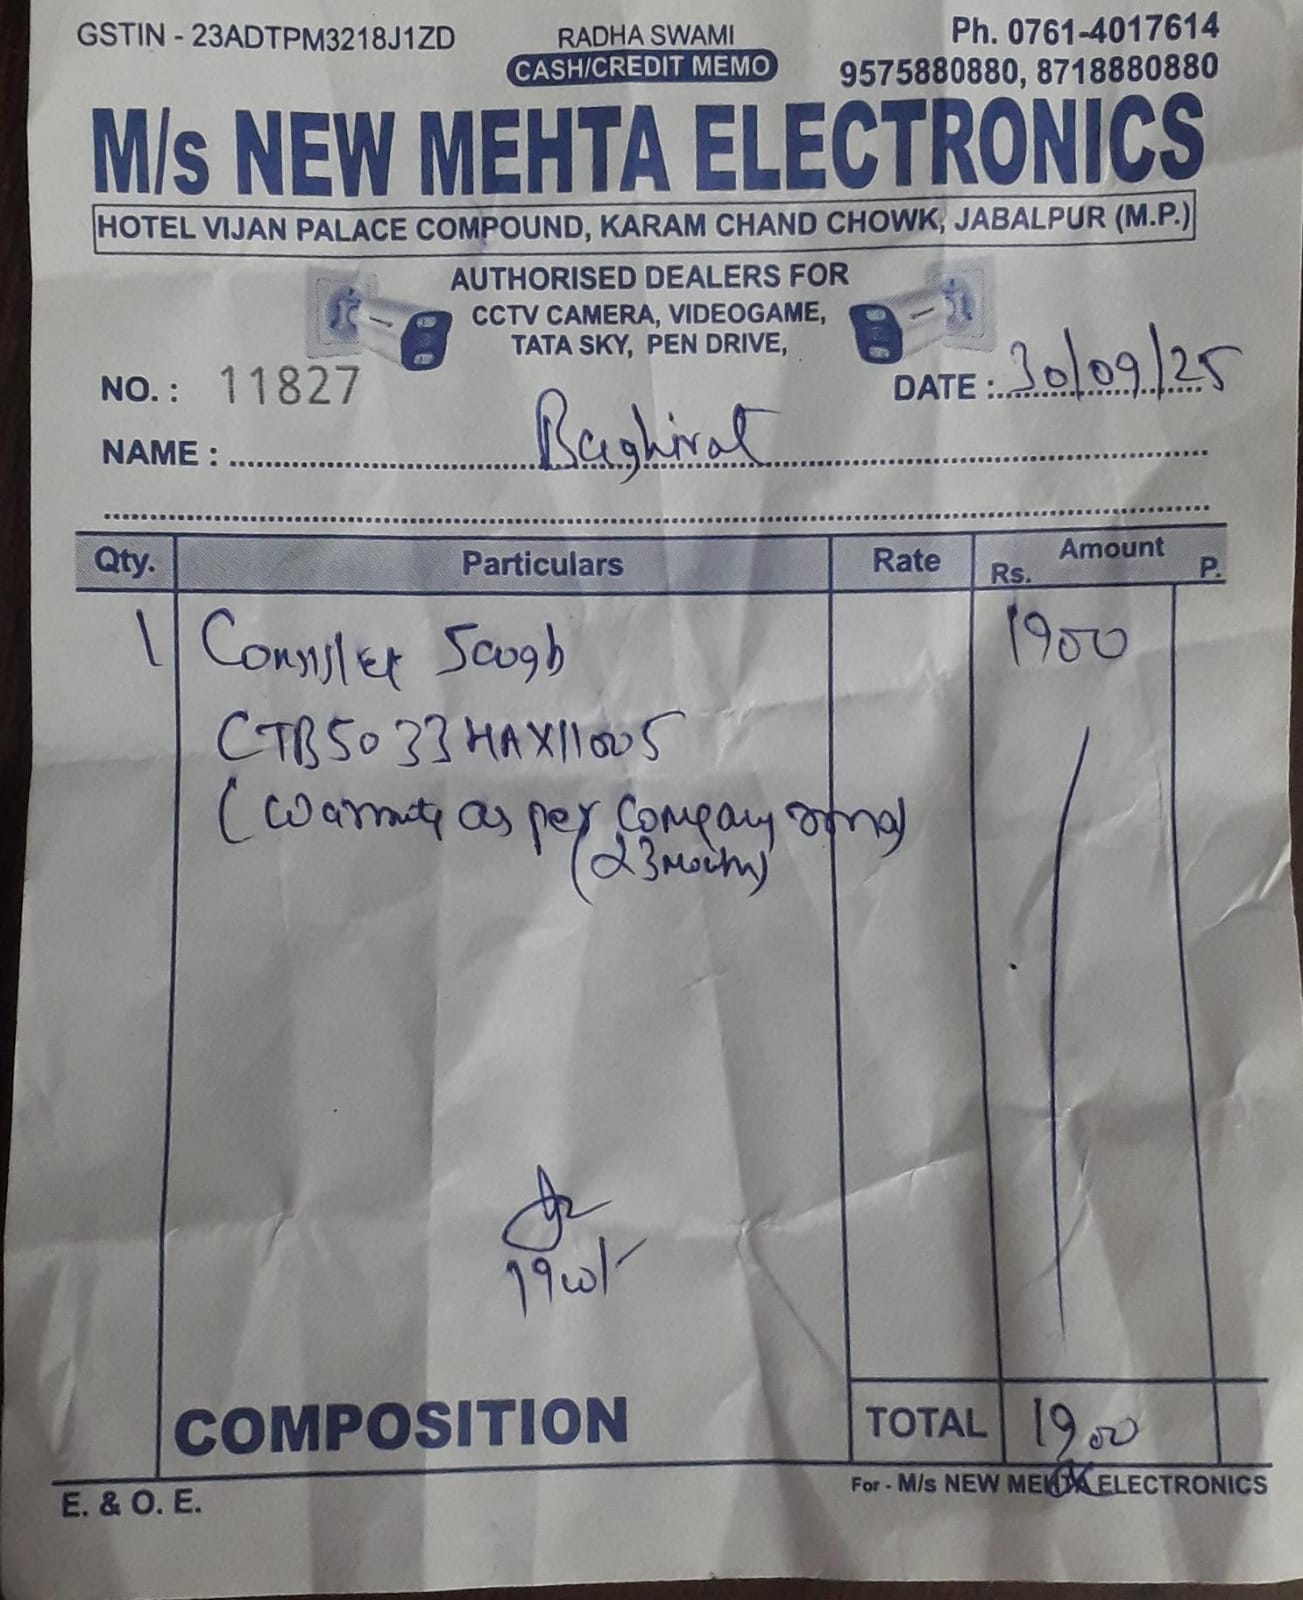 GSTIN - 23ADTPM3218J1ZD
RADHA SWAMI
CASH/CREDIT MEMO
Ph. 0761-4017614
9575880880, 8718880880
M/s NEW MEHTA ELECTRONICS
HOTEL VIJAN PALACE COMPOUND, KARAM CHAND CHOWK, JABALPUR (M.P.)
AUTHORISED DEALERS FOR
CCTV CAMERA, VIDEOGAME,
TATA SKY, PEN DRIVE,
NO. : 11827
DATE : 30/09/25
NAME : Baghirat
Qty. Particulars Rate Amount
Rs. P.
1 500gb 1900
CTB5033HAX11005
(Warranty as per Company
(23 months)
1900/-
COMPOSITION
TOTAL 1900
For - M/s NEW MEHTA ELECTRONICS
E. & O. E.